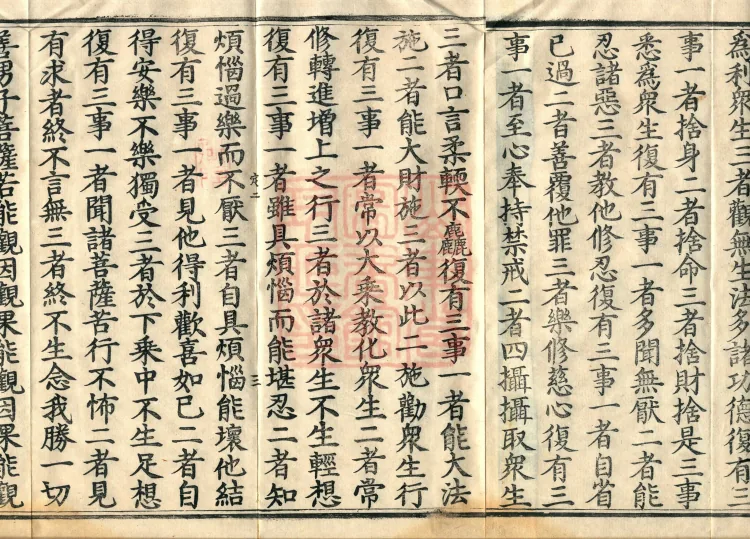 為利衆生三者勸無生法多諸功德復有三
事一者捨身二者捨命三者捨財捨是三事
悉爲衆生復有三事一者多聞無厭二者能
忍諸惡三者教他修忍復有三事一者自省
已過二者善覆他罪三者樂修慈心復有三
事一者至心奉持禁戒二者四攝攝取衆生
三者口言柔輭不麤復有三事一者能大法
施二者能大財施三者以此二施勸衆生行
復有三事一者常以大乘教化衆生二者常
修轉進增上之行三者於諸衆生不生輕想
復有三事一者雖具煩惱而能堪忍二者知
定二
三
煩惱過樂而不厭三者自具煩惱能壞他結
復有三事一者見他得利歡喜如已二者自
得安樂不樂獨受三者於下乘中不生足想
復有三事一者聞諸菩薩苦行不怖二者見
有求者終不言無三者終不生念我勝一切
善男子菩薩若能觀因觀果能觀因果能觀